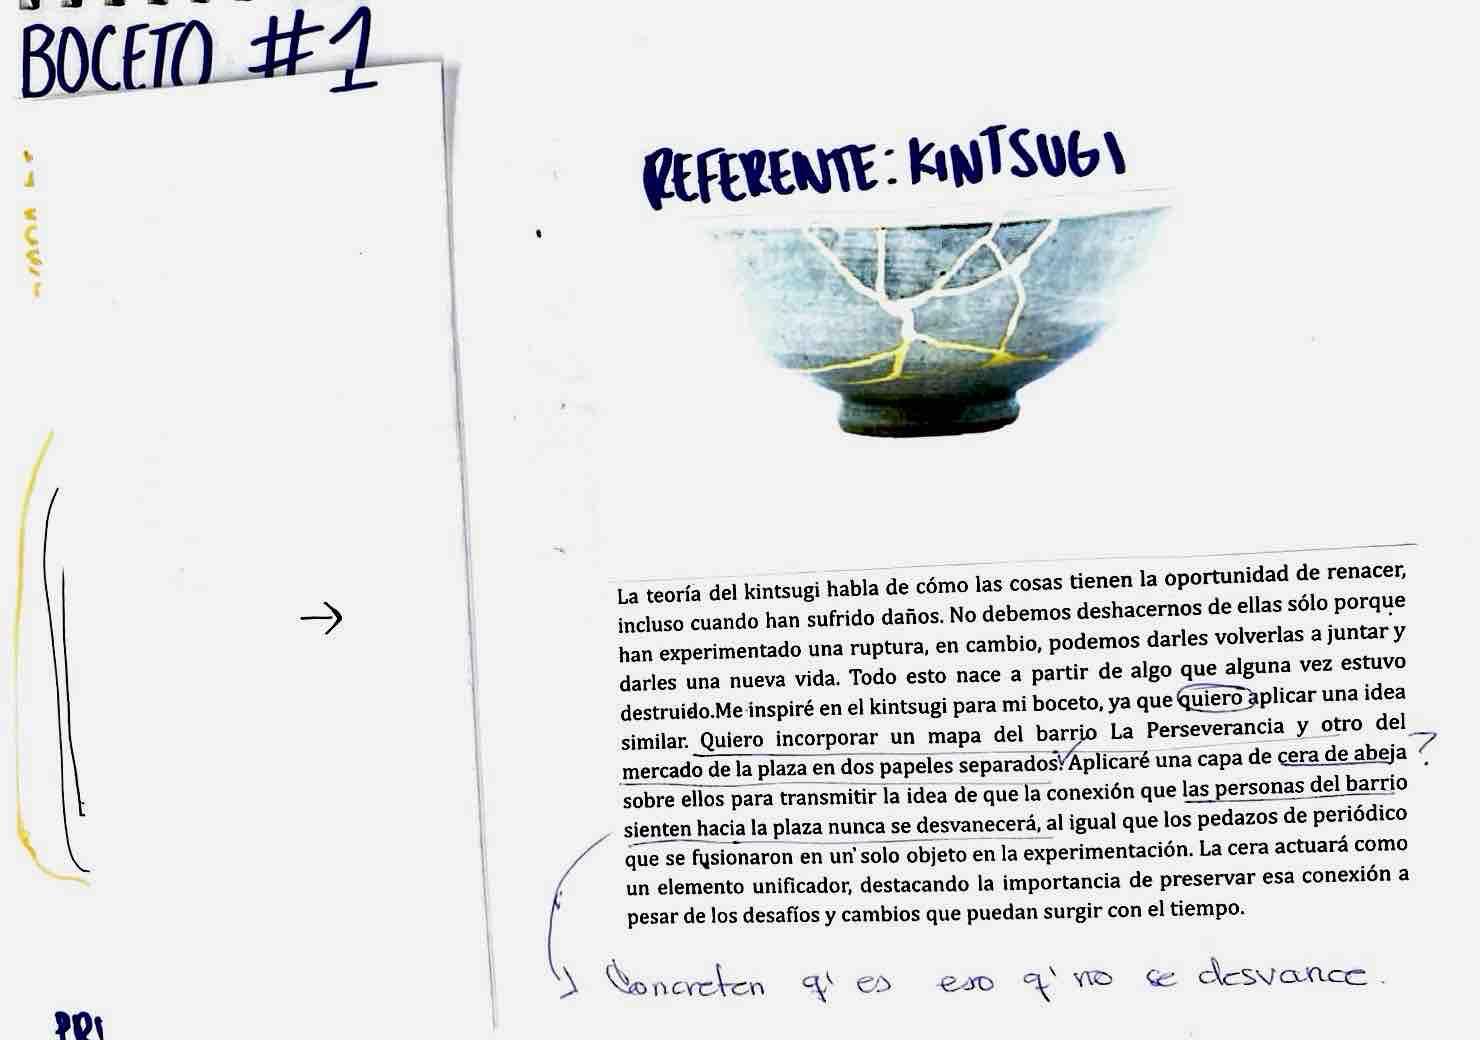 BOCETO #1
REFERENTE: KINTSUGI
La teoría del kintsugi habla de cómo las cosas tienen la oportunidad de renacer,
incluso cuando han sufrido daños. No debemos deshacernos de ellas sólo porque
han experimentado una ruptura, en cambio, podemos darles volverlas a juntar y
darles una nueva vida. Todo esto nace a partir de algo que alguna vez estuvo
destruido.Me inspiré en el kintsugi para mi boceto, ya que quiero aplicar una idea
similar. Quiero incorporar un mapa del barrio La Perseverancia y otro del
mercado de la plaza en dos papeles separados. Aplicaré una capa de cera de abeja ?
sobre ellos para transmitir la idea de que la conexión que las personas del barrio
sienten hacia la plaza nunca se desvanecerá, al igual que los pedazos de periódico
que se fusionaron en un solo objeto en la experimentación. La cera actuará como
un elemento unificador, destacando la importancia de preservar esa conexión a
pesar de los desafíos y cambios que puedan surgir con el tiempo.
Concreten q' es eso q' no se desvance.
PRI